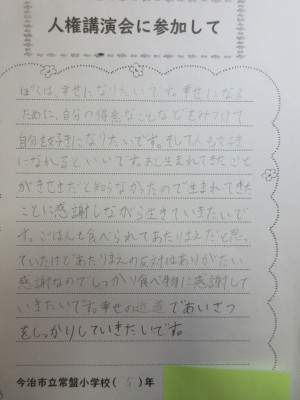 人権講演会に参加して
ぼくは、幸せになりたいです。幸せになる
ために、自分の得意なことなどをみつけて
自分を好きになりたいです。そして人も好き
になれるといいです。あと生まれてきたこと
がきせきだと知らなかったので生まれてきた
ことに感謝しながら生きていきたいで
す。ごはんも食べられてあたりまえだと思っ
ていたけどあたりまえの反対はありがたい
感謝なのでしっかり食べ物に感謝して
いきたいです。幸せの近道であいさつ
をしっかりしていきたいです。
今治市立常盤小学校(5)年